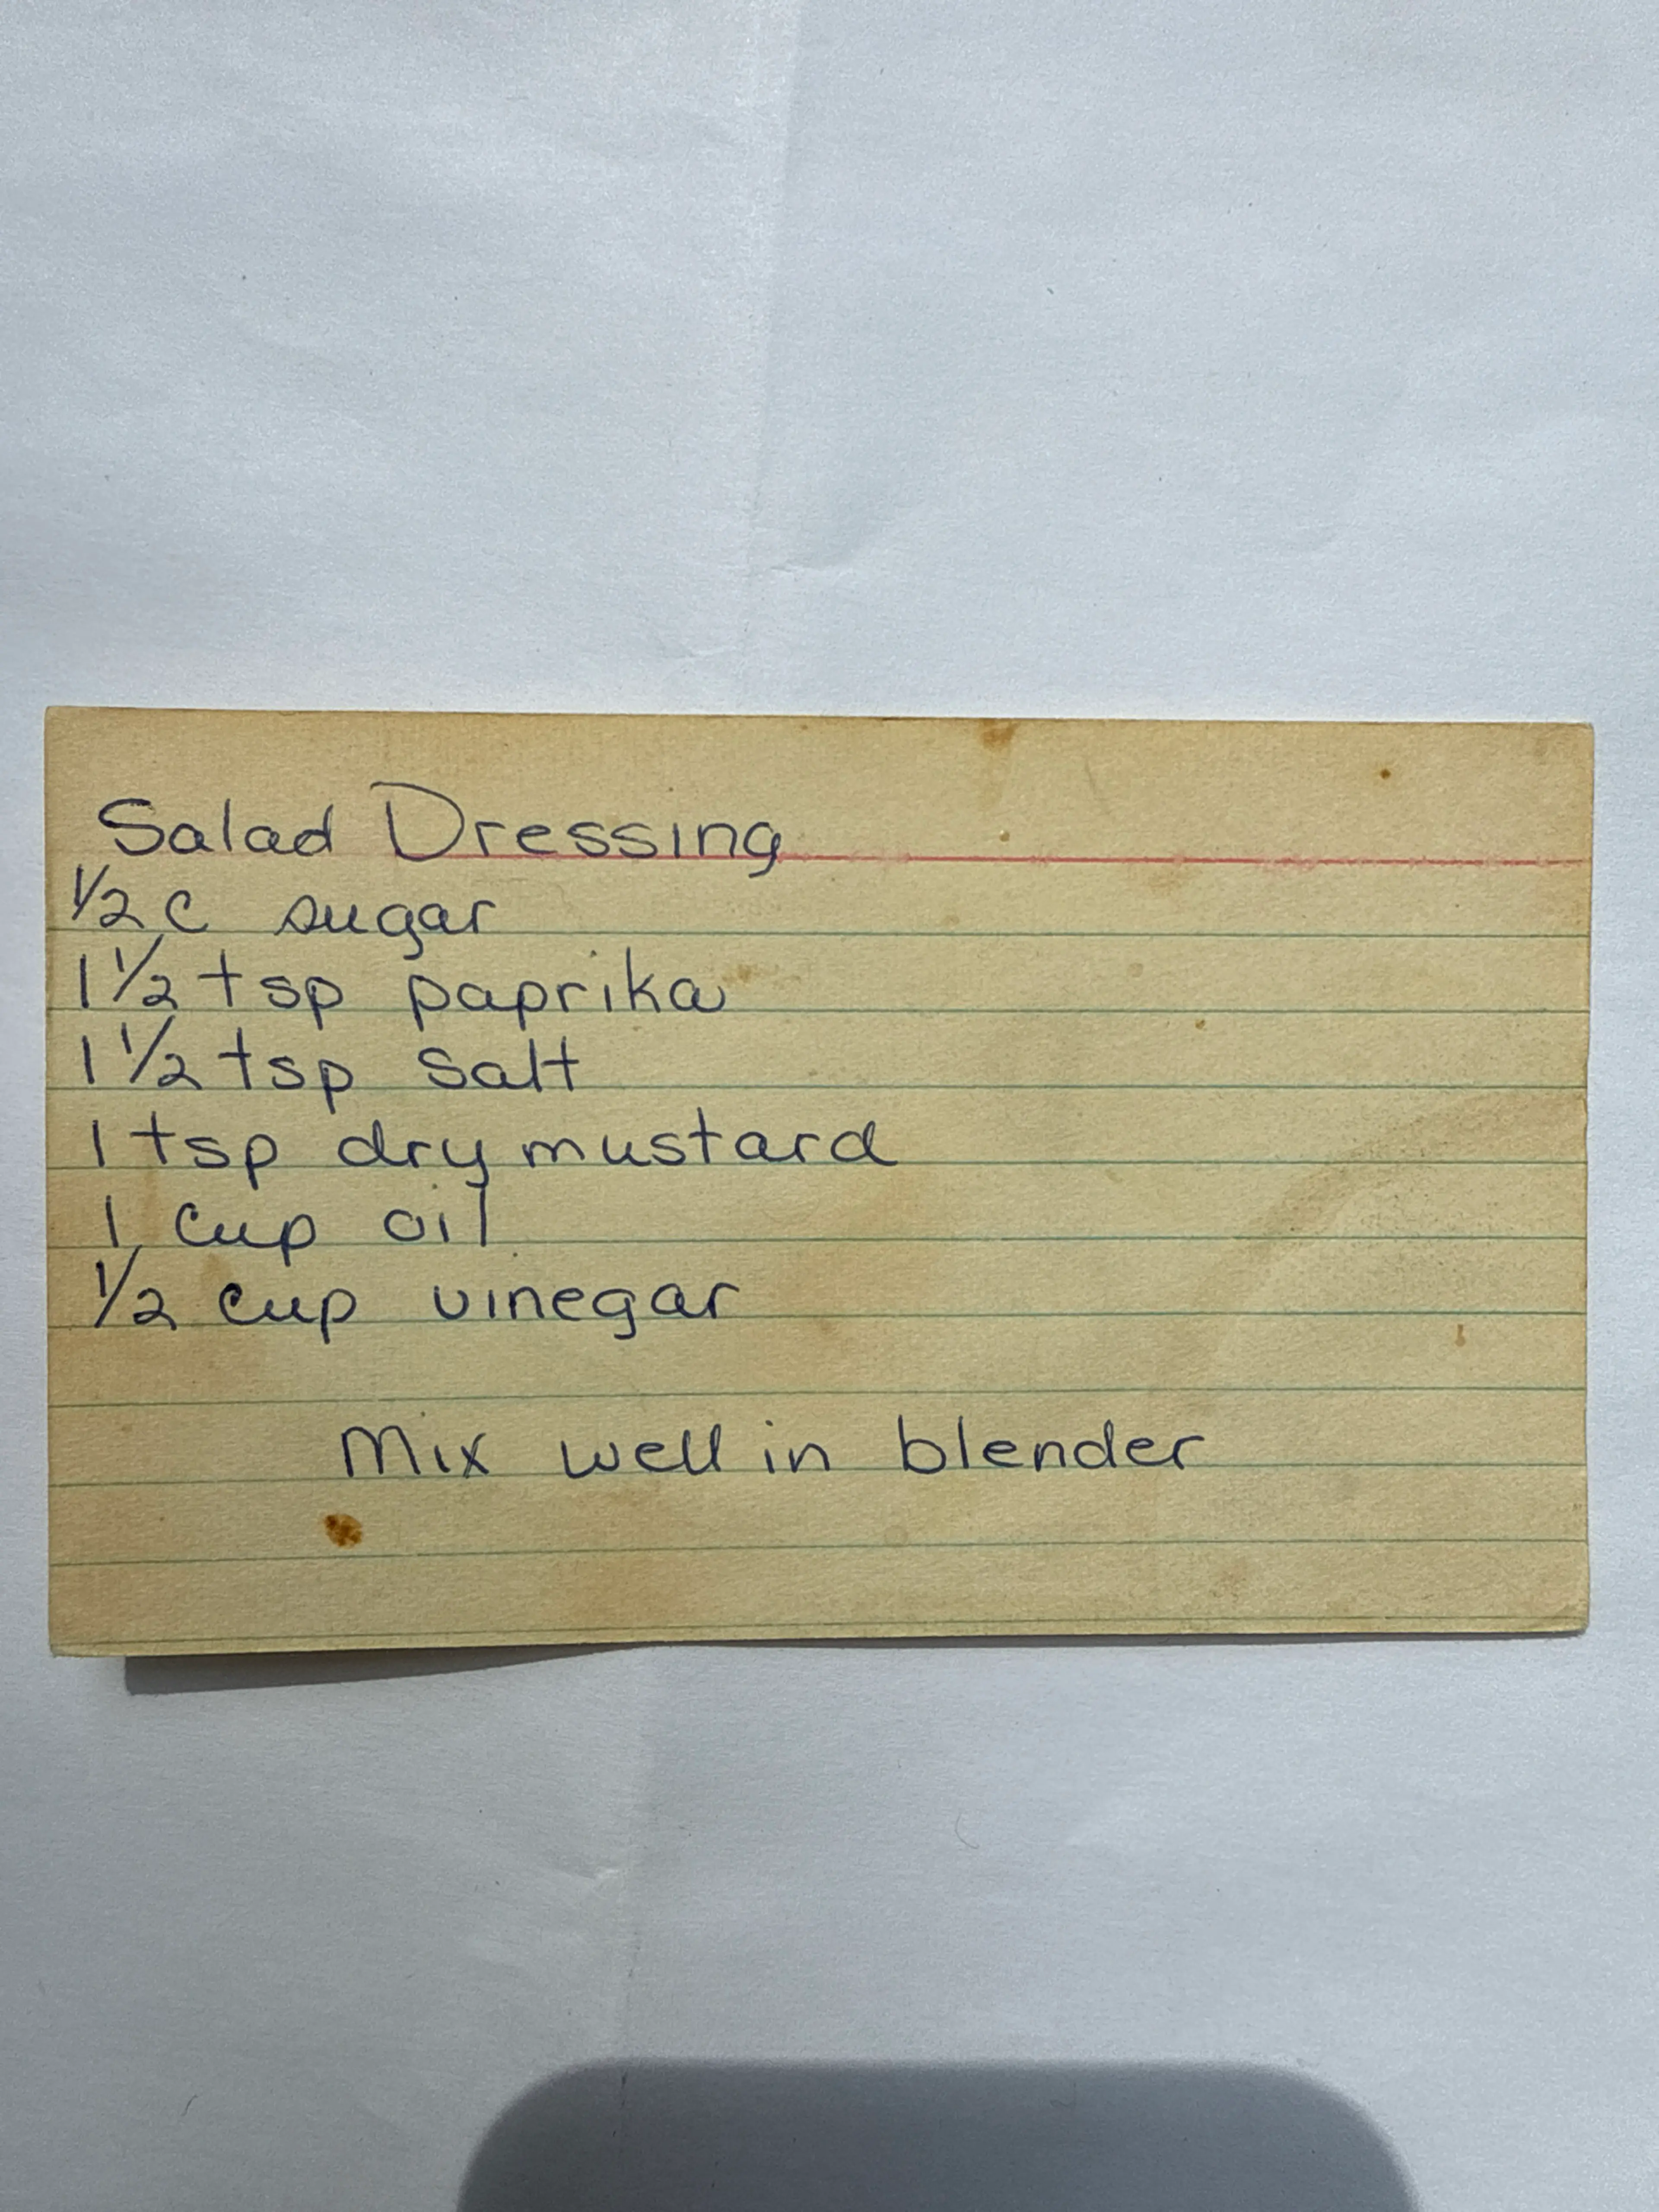 Salad Dressing
1/2 c sugar
1 1/2 tsp paprika
1 1/2 tsp salt
1 tsp dry mustard
1 cup oil
1/2 cup vinegar
Mix well in blender